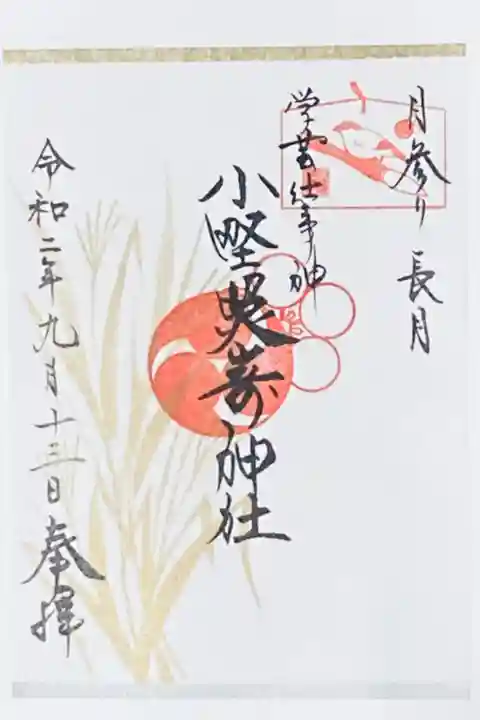 月参り 長月
学芸仕事神
小野照崎神社
令和二年九月十三日 奉拝